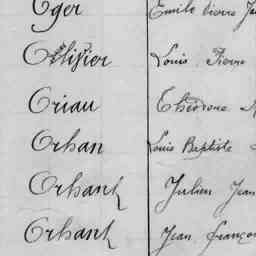 Oger Emile Pierre
Ollivier Louis Pierre
Oriau Théodore
Orhan Louis Baptiste
Orhant Julien Jean
Orhant Jean françois